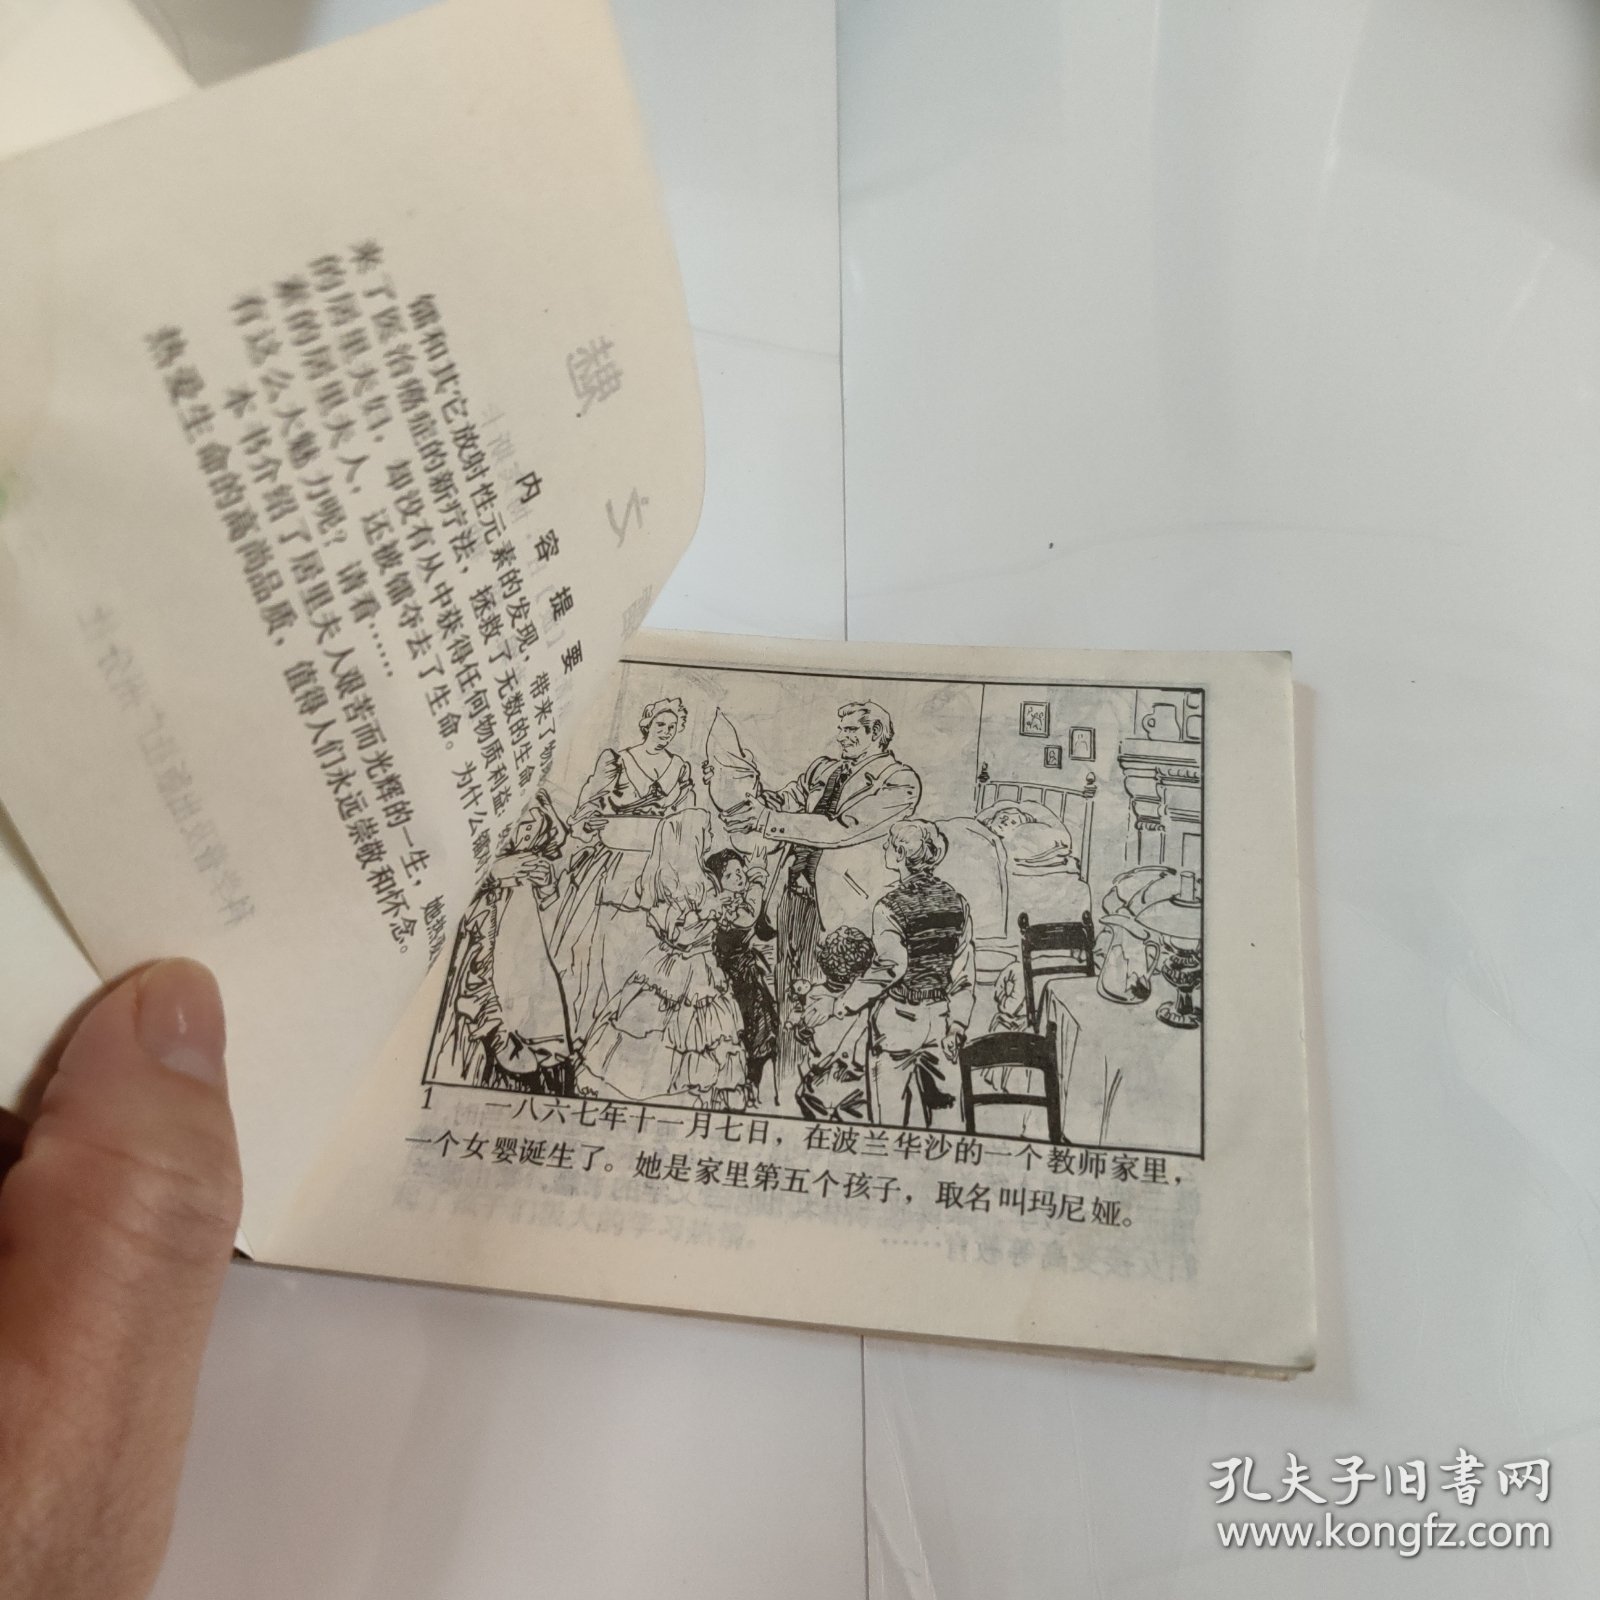 内容提要
镭和其它放射性元素的发现，带来了物
来了医治癌症的新疗法，拯救了无数的生命。
的居里夫妇，却没有从中获得任何物质利益，
素的居里夫人，还被镭夺去了生命。为什么镭
有这么大魅力呢？请看……
本书介绍了居里夫人艰苦而光辉的一生，她热
热爱生命的高尚品质，值得人们永远崇敬和怀念。
1 一八六七年十一月七日，在波兰华沙的一个教师家里，
一个女婴诞生了。她是家里第五个孩子，取名叫玛尼娅。
孔夫子旧书网
www.kongfz.com